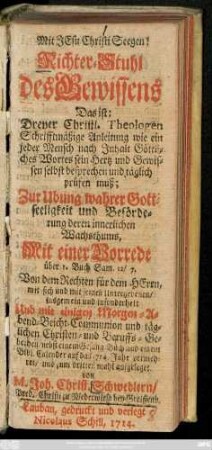 Mit JEsu Christi Seegen!
Richter-Stuhl
des Gewissens
Das ist:
Dreyer Christl. Theologen
Schrifftmäßige Anleitung wie ein
jeder Mensch nach Inhalt Göttli-
ches Wortes sein Hertz und Gewis-
sen selbst besprechen und täglich
prüfen muß;
Zur Übung wahrer Gott-
seeligkeit und Beförde-
rung deren innerlichen
Wachsthums,
Mit einer Vorrede
über 1. Buch Sam. 12/ 7.
Von dem Rechten für dem HErrn,
mit sich und mit seinen Untergebenen/
insgemein und insonderheit
Und mit einigen Morgen- A-
bend- Beicht- Communion und täg-
lichen Christen- und Beruffs- Ge-
Calender auf das 1714. Jahr vermeh-
ret, und zum dritten mahl ausgefertiget
von
M. Joh. Christ. Schwedlern/
Pred. Christi zu Niederwiesa bey Greiffenb.
Lauban, gedruckt und verlegt
Nicolaus Schill, 1714.